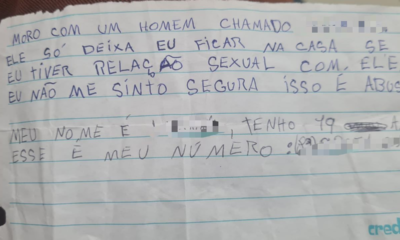 MORO COM UM HOMEM CHAMADO
ELE SÓ DEIXA EU FICAR NA CASA SE
EU TIVER RELAÇÃO SEXUAL COM ELE
EU NÃO ME SINTO SEGURA ISSO É ABUS
MEU NOME É , TENHO 19 A
ESSE É MEU NÚMERO :
cred